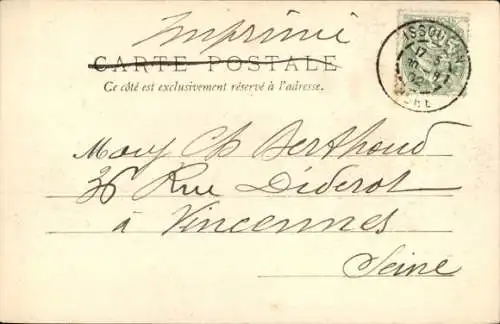 Imprimé
CARTE POSTALE
Ce côté est exclusivement réservé à l'adresse.
ISSOUDUN
Ch Berthoud
36 Rue Diderot
à Vincennes
Seine